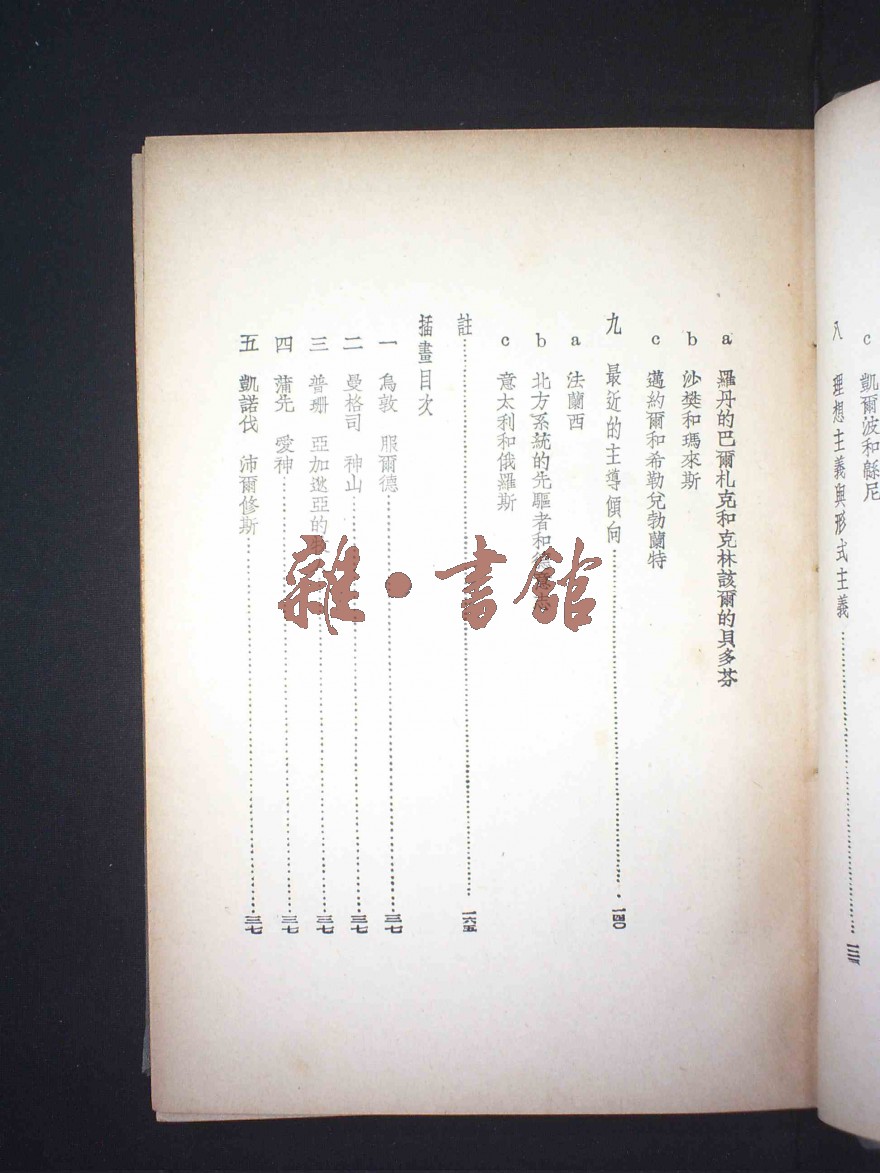 c 凱爾波和緜尼
八 理想主義與形式主義
a 羅丹的巴爾札克和克林該爾的貝多芬
b 沙樊和瑪來斯
c 邁約爾和希勒兌勃蘭特
九 最近的主導傾向 一四〇
a 法蘭西
b 北方系統的先驅者和
c 意太利和俄羅斯
註 一六五
插畫目次
一 烏敦 服爾德 三七
二 曼格司 神山 三七
三 普珊 亞加遞亞的 三七
四 蒲先 愛神 三七
五 凱諾伐 沛爾修斯 三七
雜·書館